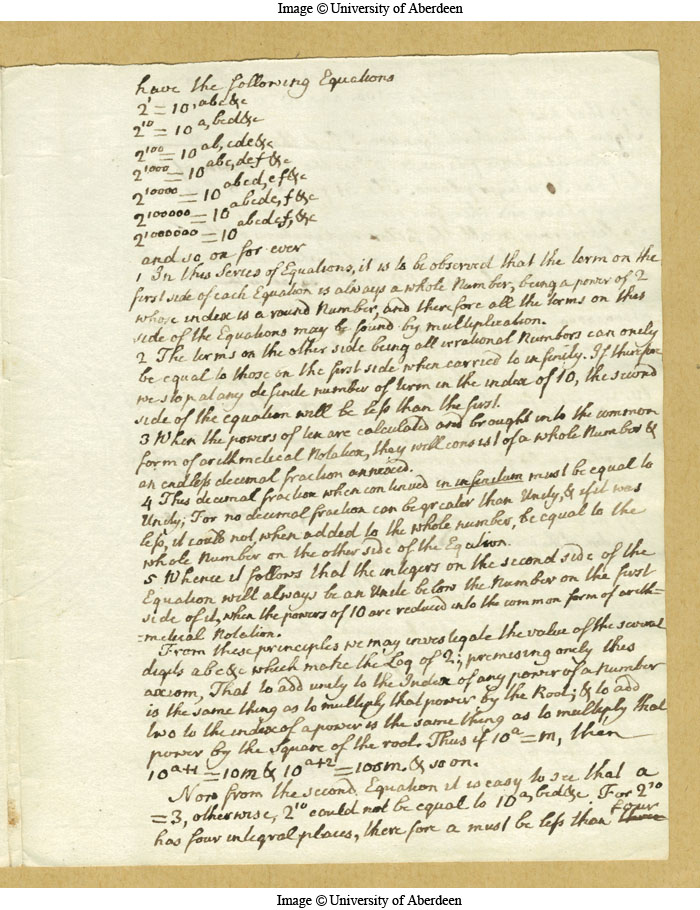 Image © University of Aberdeen
have the following Equations
2¹ = 10^,abc&c
2¹⁰ = 10^a,bcd&c
2¹⁰⁰ = 10^ab,cde&c
2¹⁰⁰⁰ = 10^abc,def&c
2¹⁰⁰⁰⁰ = 10^abcd,ef&c
2¹⁰⁰⁰⁰⁰ = 10^abcde,f&c
2¹⁰⁰⁰⁰⁰⁰ = 10^abcdef,&c
and so on for ever
1 In this Series of Equations, it is to be observed that the term on the
first side of each Equation is always a whole Number, being a power of 2
whose index is a round Number, and therefore all the terms on this
side of the Equations may be found by multiplication.
2 The terms on the other side being all irrational Numbers can onely
be equal to those on the first side when carried to infinity. If therefore
we stop at any definite number of term in the index of 10, the second
side of the equation will be less than the first.
3 When the powers of ten are calculated and brought into the common
form of arithmetical Notation, they will consist of a whole Number &
an endless decimal fraction annexed.
4 This decimal fraction when continued in infinitum must be equal to
Unity; For no decimal fraction can be greater than Unity, & if it was
less, it could not when added to the whole number, be equal to the
whole Number on the other side of the Equation.
5 Whence it follows that the integers on the second side of the
Equation will always be an Unite below the Number on the first
side of it, when the powers of 10 are reduced into the common form of arith=
=metical Notation.
From these principles we may investigate the value of the several
digits abc&c which make the Log of 2; premising onely this
axiom, That to add unity to the Index of any power of a Number
is the same thing as to multiply that power by the Root; & to add
two to the index of a power is the same thing as to multiply that
power by the Square of the root. Thus if 10^a = m, then
10^a+1 = 10m & 10^a+2 = 100m. & so on.
Now from the second Equation it is easy to see that a
= 3, otherwise, 2¹⁰ could not be equal to 10^a,bcd&c For 2¹⁰
has four integral places, therefore a must be less than four
Image © University of Aberdeen